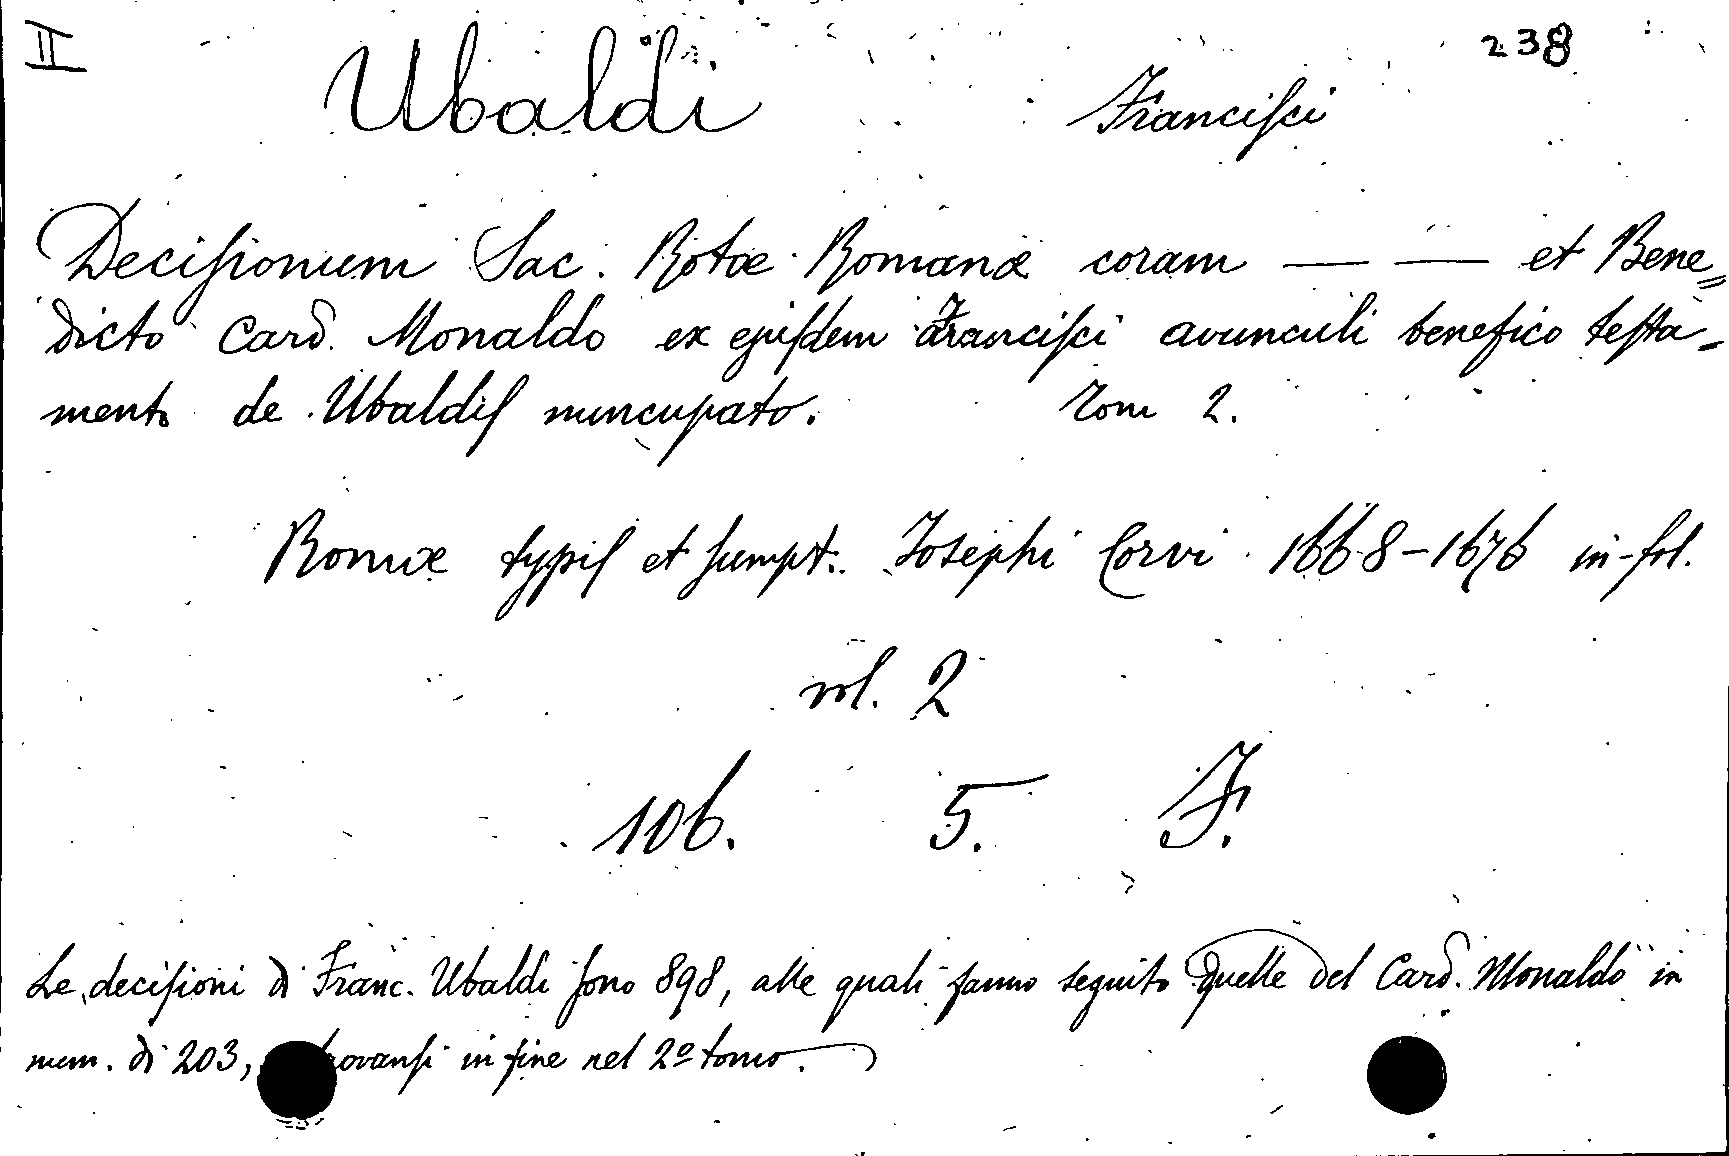 II Ubaldi Franciſci 238
Deciſionum Sac. Rotæ Romanæ coram — — et Bene=
dicto Card. Monaldo ex ejuſdem Franciſci avunculi benefico teſta-
mento de Ubaldiſ nuncupato. Tom 2.
Romæ typiſ et ſumpt. Josephi Corvi 1668-1676 in-fol.
vol. 2
106. 5. F.
Le deciſioni di Franc. Ubaldi ſono 898, alle quali fanno seguito quelle del Card. Monaldo in
num. di 203, trovanſi in fine nel 2º tomo.